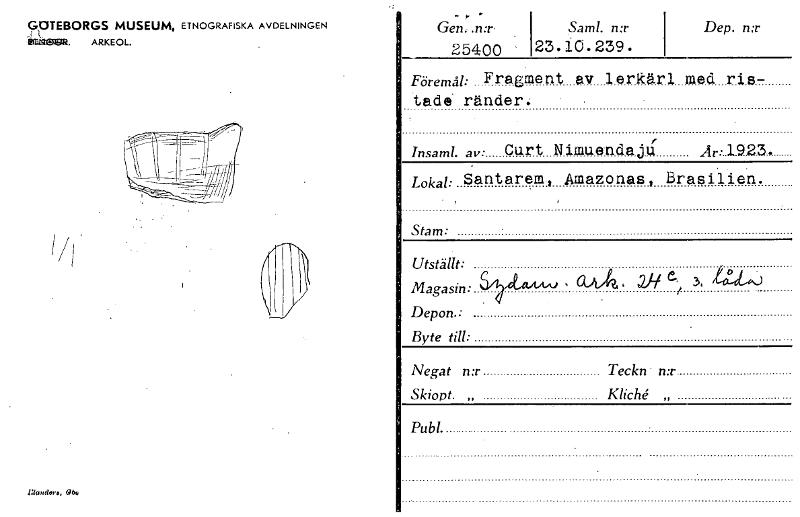 GÖTEBORGS MUSEUM, ETNOGRAFISKA AVDELNINGEN
ARKEOL.
1/1
Elanders, Gbg
Gen. n:r Saml. n:r Dep. n:r
25400 23.10.239.
Föremål: Fragment av lerkärl med ris-
tade ränder.
Insaml. av: Curt Nimuendajú År: 1923.
Lokal: Santarem, Amazonas, Brasilien.
Stam:
Utställt:
Magasin: Sydam. ark. 24 c, 3. låda
Depon.:
Byte till:
Negat n:r Teckn n:r
Skiopt. „ Kliché „
Publ.